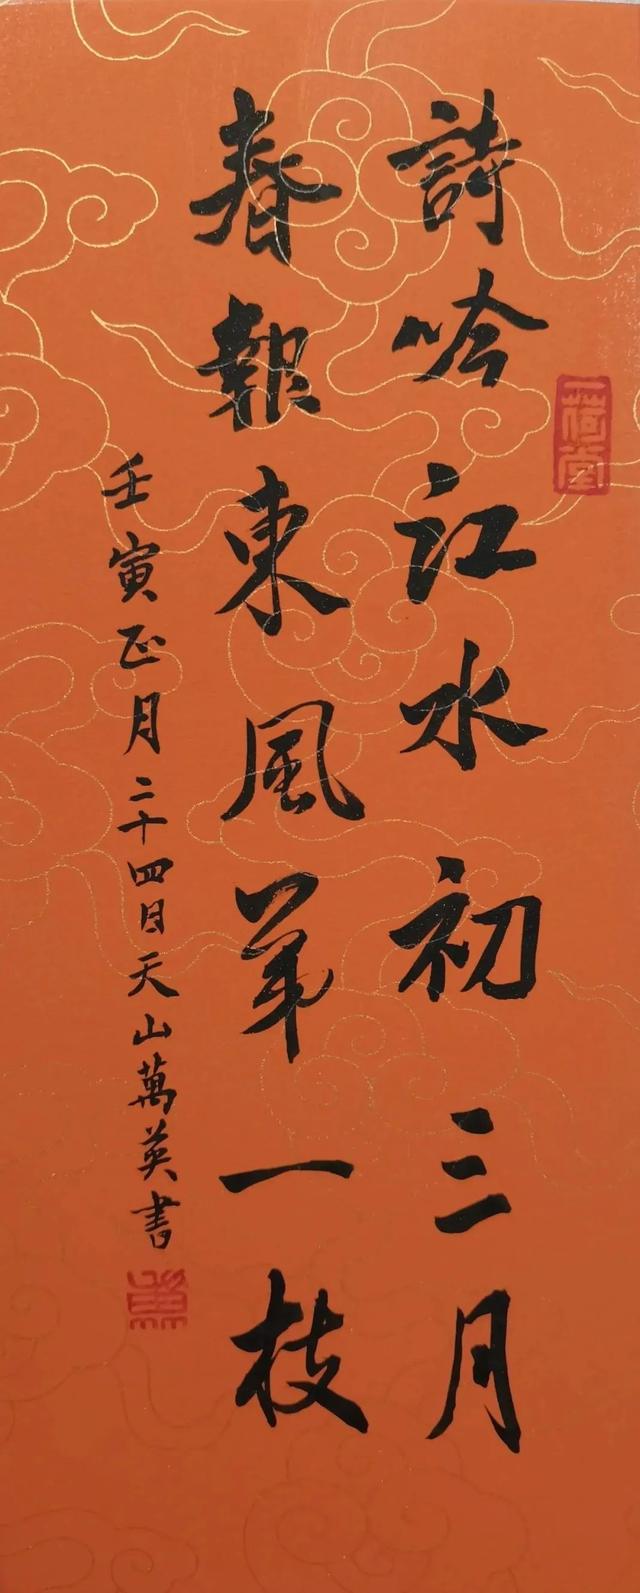 詩吟江水初三月
春報東風第一枝
壬寅正月二十四日天山萬英書
一荷堂